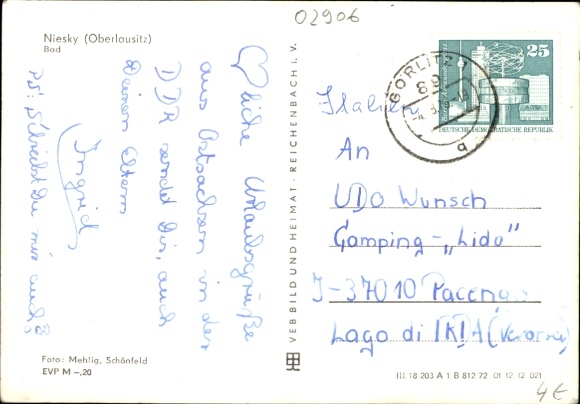 02906
Niesky (Oberlausitz)
Bad
♡liche Urlaubsgrüße
aus Ostsachsen in der
DDR sendet Dir, auch
Deinen Eltern
Ingrid
PS: Schreibst Du mir auch?
VEB BILD UND HEIMAT · REICHENBACH i. V.
25
DEUTSCHE DEMOKRATISCHE REPUBLIK
GÖRLITZ 1
89
q
Italien
An
UDo Wunsch
Camping-„Lido"
I-37010 Pacengo
Lago di (Verona)
Foto: Mehlig, Schönfeld
EVP M –,20
III 18 203 A 1 B 812 72 01 12 12 021
4€